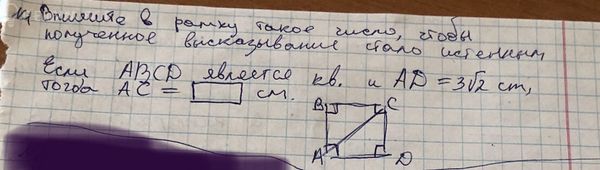 Впишите в рамку такое число, чтобы
полученное высказывание стало истенным
Если ABCD является кв. и AD = 3√2 cm,
тогда AC = см.
B C
A D